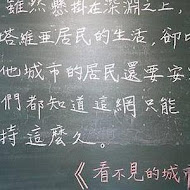 雖然懸掛在深淵之上，
塔維亞居民的生活，卻
他城市的居民還要安
們都知道這網只能
持這麼久。
《看不見的城